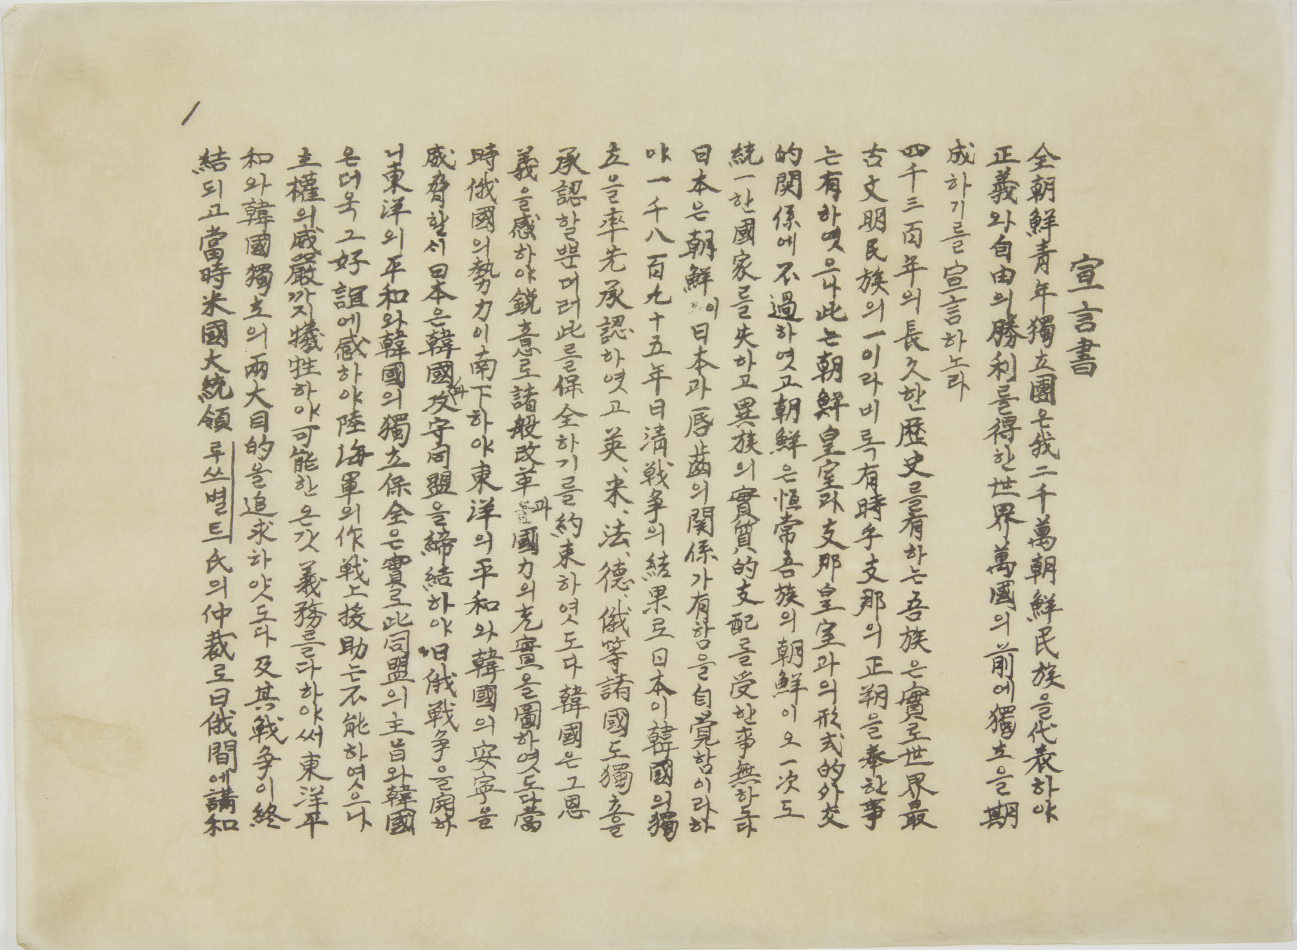 宣言書
全朝鮮青年獨立團은我二千萬朝鮮民族을代表하야
正義와自由의勝利를得한世界萬國의前에獨立을期
成하기를宣言하노라
四千三百年의長久한歴史를有하는吾族은實로世界最
古文明民族의一이라비록有時乎支那의正朔을奉한事
는有하엿으나此는朝鮮皇室과支那皇室과의形式的外交
的関係에不過하엿고朝鮮은恒常吾族의朝鮮이오一次도
統一한國家를失하고異族의實質的支配를受한事無하도다
日本은朝鮮이日本과唇齒의関係가有함을自覺함이라하
야一千八百九十五年日清戦争의結果로日本이韓國의獨
立을率先承認하엿고英、米、法、德、俄等諸國도獨立을
承認할뿐더러此를保全하기를約束하엿도다韓國은그恩
義을感하야鋭意로諸般改革과國力의充實을圖하엿도다當
時俄國의勢力이南下하야東洋의平和와韓國의安寧을
威脅할시日本은韓國과攻守同盟을締結하야日俄戦争을開하
니東洋의平和와韓國의獨立保全은實로此同盟의主旨와韓國
은더욱그好誼에感하야陸海軍의作戦上援助는不能하엿으나
主權의威嚴까지犧牲하야可能한온갓義務를다하야써東洋平
和와韓國獨立의兩大目的을追求하얏도다及其戦争이終
結되고當時米國大統領루쓰벨트氏의仲裁로日俄間에講和